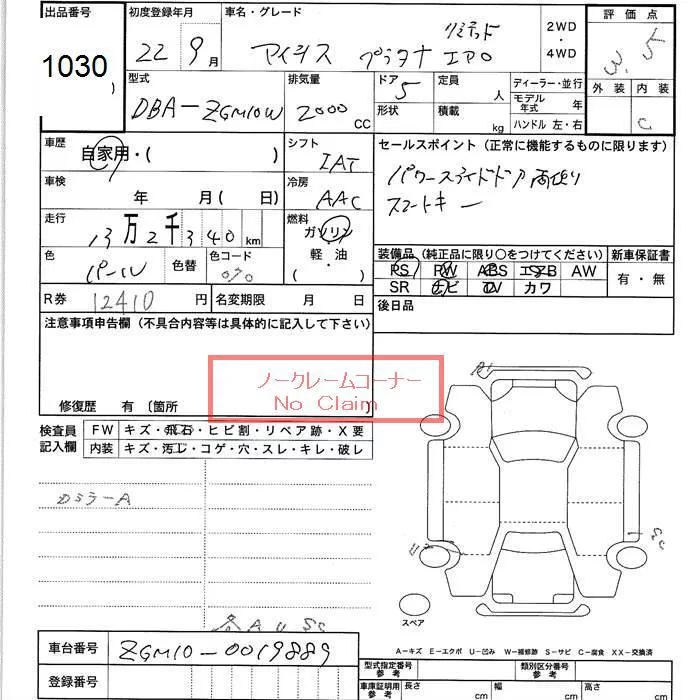 出品番号 初度登録年月 車名・グレード 2WD・4WD 評価点
1030 22 9月 アイシス プラタナ リミテッド 3.5
型式 排気量 ドア 定員 ディーラー・並行 外装 内装
DBA-ZGM10W 2000 CC 5 人 モデル年式 年 C
形状 積載 kg ハンドル 左・右
車歴 シフト セールスポイント(正常に機能するものに限ります)
自家用・( ) IAT パワースライドドア両側
車検 冷房 スマートキー
年 月( 日) AAC
走行 燃料
13万2千340km ガソリン
色 色替 色コード 軽・油
パール 070 ・( )
装備品(純正品に限り○をつけてください) 新車保証書
PS PW ABS エアB AW 有・無
SR ナビ TV カワ
R券 12410円 名変期限 月 日 後日品
注意事項申告欄(不具合内容等は具体的に記入して下さい)
ノークレームコーナー
No Claim
修復歴 有 〔箇所 〕
検査員記入欄 FW キズ・飛石・ヒビ割・リペア跡・X要
内装 キズ・汚レ・コゲ・穴・スレ・キレ・破レ
A1
DミラーA
U2
スペア
A U SC
A-キズ E-エクボ U-凹み W-補修跡 S-サビ C-腐食 XX-交換済
車台番号 ZGM10-0019889 型式指定番号参考 類別区分番号参考
登録番号 車庫証明用参考 長さ cm 幅 cm 高さ cm